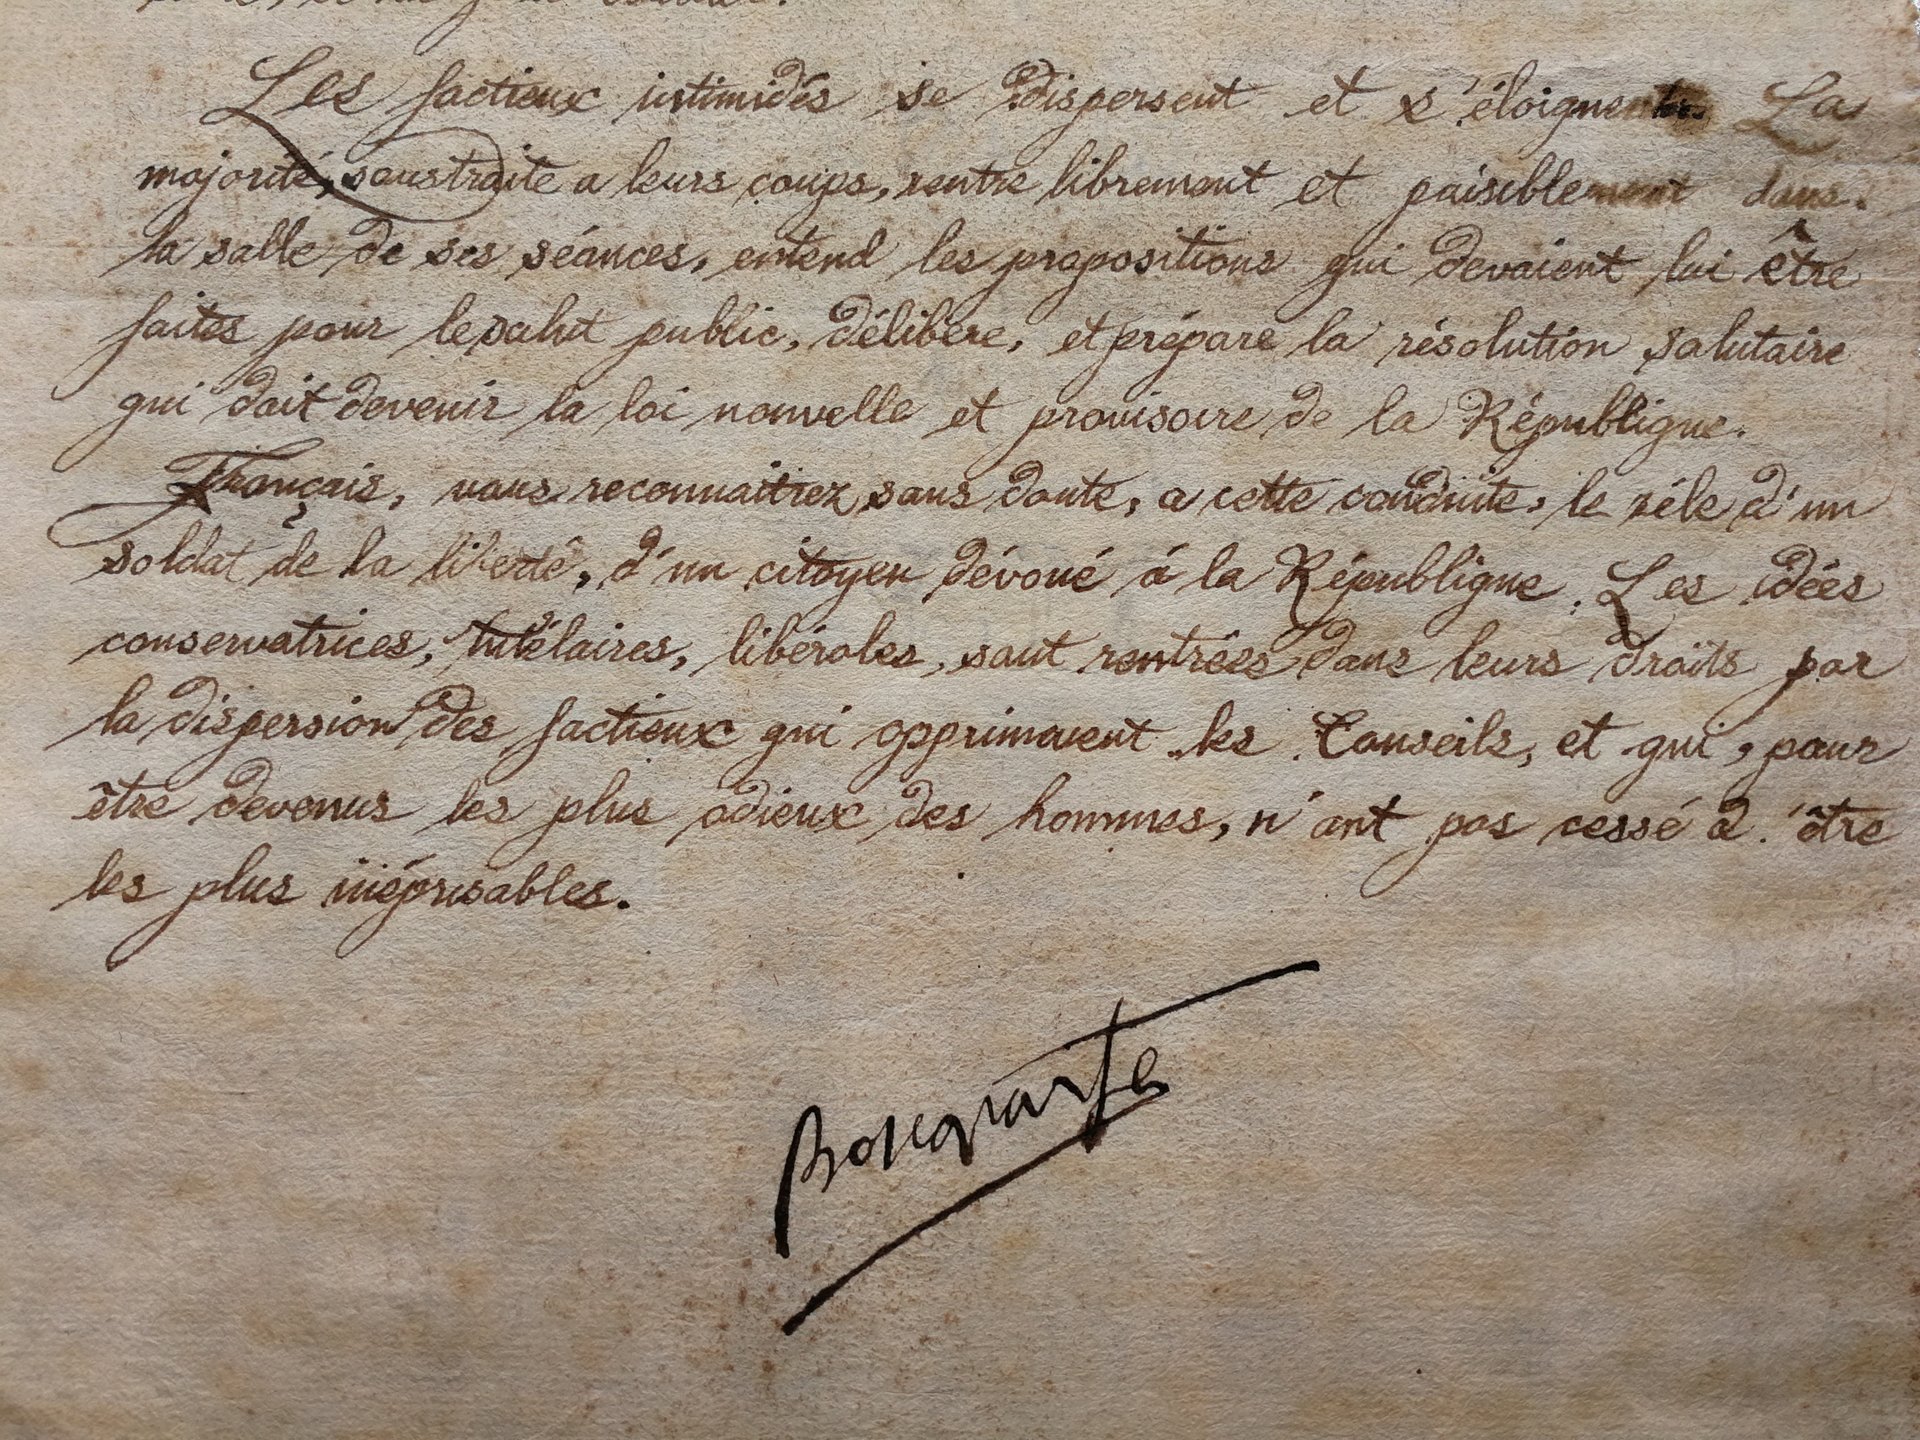 Les factieux intimidés se dispersent et s'éloignent. La
majorité, soustraite a leurs coups, rentre librement et paisiblement dans
la salle de ses séances, entend les propositions qui devaient lui être
faites pour le salut public, délibère, et prépare la résolution salutaire
qui doit devenir la loi nouvelle et provisoire de la République.
Français, vous reconnaitrez sans doute, a cette conduite, le zéle d'un
soldat de la liberté, d'un citoyen dévoué à la République. Les idées
conservatrices, tutélaires, libérales, sont rentrées dans leurs droits par
la dispersion des factieux qui opprimaient les Conseils, et qui, pour
être devenus les plus odieux des hommes, n'ont pas cessé d'être
les plus méprisables.
Bonaparte